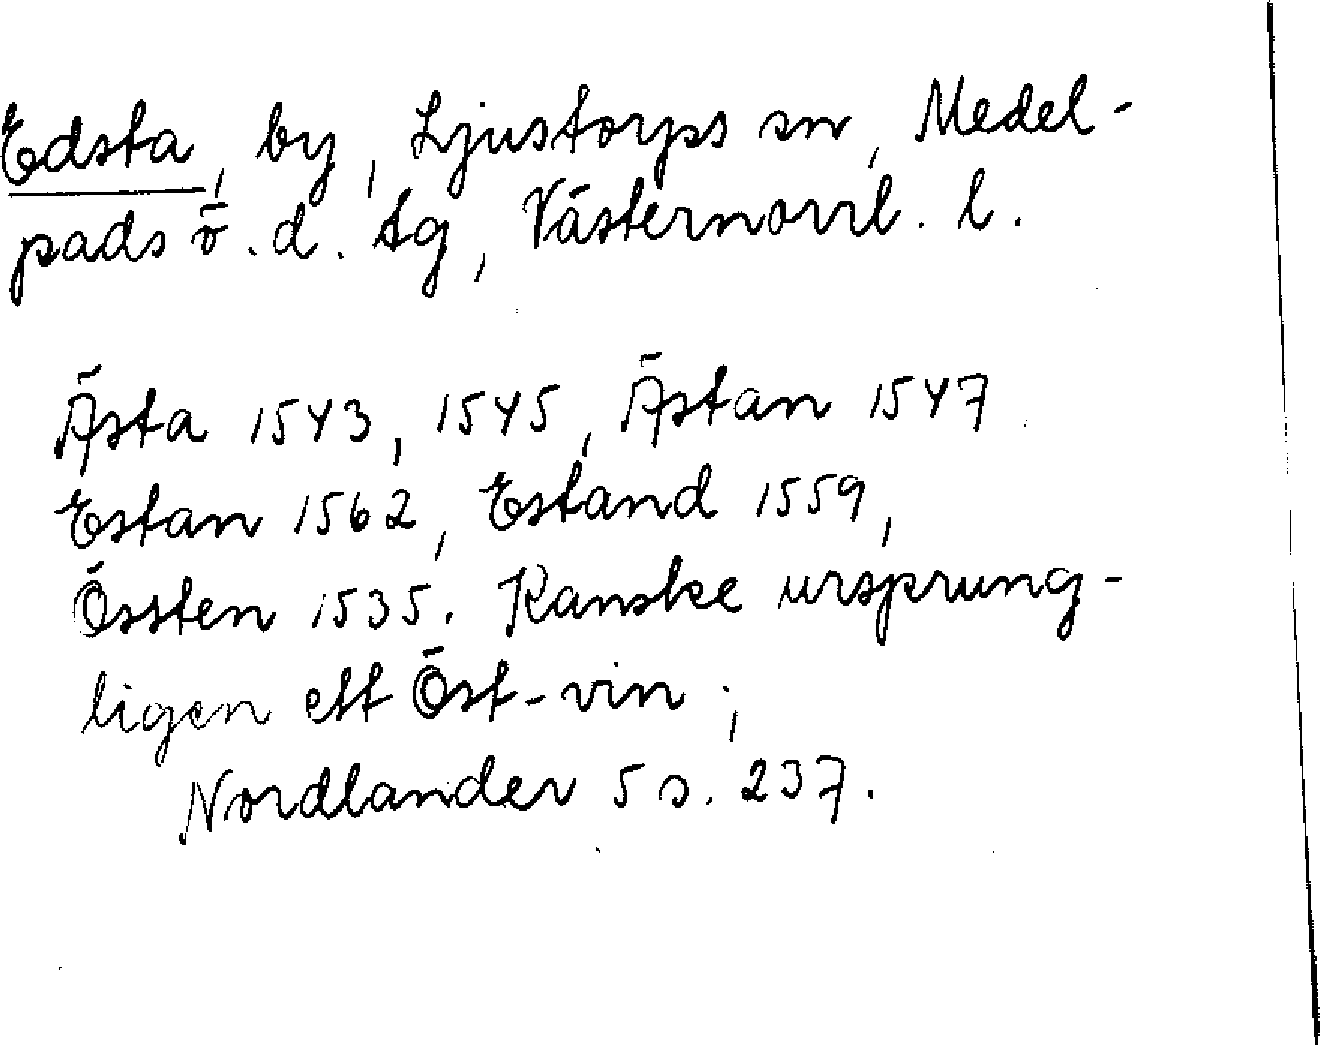 Edsta, by, Ljustorps sn, Medel-
pads ö. d. tg, Västernorrl. l.
Ästa 1543, 1545, Ästan 1547
Estan 1562, Estand 1559,
Össten 1535. Kanske ursprung-
ligen ett Öst-vin;
Nordlander 5 s. 237.